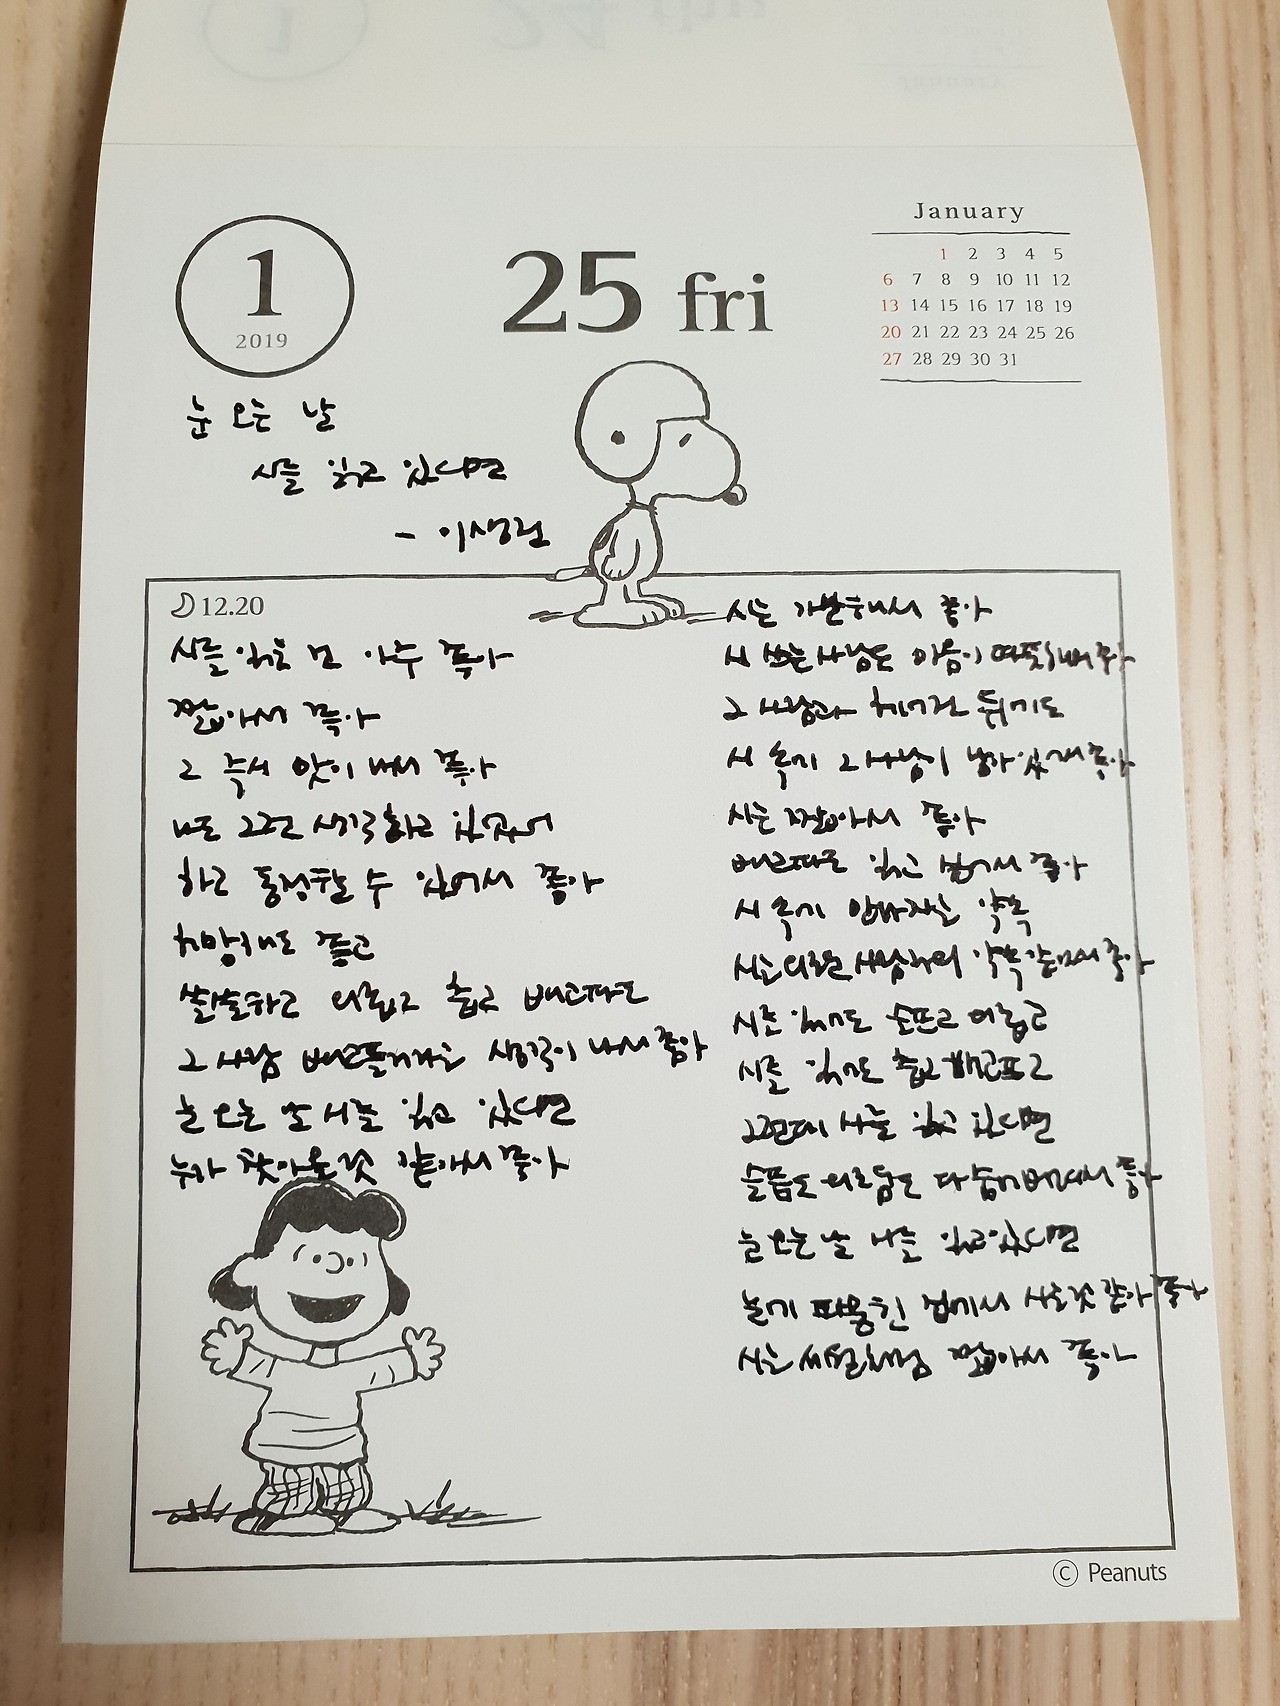 1
2019
25 fri
January
1 2 3 4 5
6 7 8 9 10 11 12
13 14 15 16 17 18 19
20 21 22 23 24 25 26
27 28 29 30 31
눈 오는 날
시를 읽고 있다면
- 이생진
12.20
시를 읽는 건 아주 좋아
짧아서 좋아
그 즉시 맛이 나서 좋아
나도 그런 생각하고 있었어
하고 동정할 수 있어서 좋아
허망해도 좋고
쓸쓸하고 외롭고 춥고 배고파도
그 사람 배고플거라는 생각이 나서 좋아
눈 오는 날 시를 읽고 있다면
누가 찾아올 것 같아서 좋아
시는 가난해서 좋아
시 쓰는 사람도 마음이 따뜻해서 좋아
그 사람과 헤어진 뒤에도
시 속에 그 사람이 남아 있어서 좋아
시는 짧아서 좋아
배고파도 읽고 싶어서 좋아
시 속에 만나자는 약속
시는 외로운 사람과의 약속 같아서 좋아
시를 읽어도 슬프고 외롭고
시를 읽어도 춥고 배고프고
그런데 시를 읽고 있다면
슬픔도 외로움도 다 숨어버려서 좋아
눈 오는 날 시를 읽고 있다면
눈에 파묻힌 집에서 사는 것 같아 좋아
시는 세월처럼 짧아서 좋아
© Peanuts